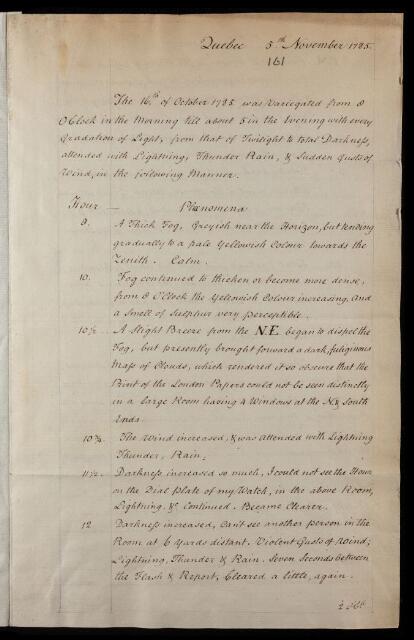 Quebec 5th November 1785.
161
The 16th of October 1785 was Variegated from 8
OClock in the Morning till about 5 in the Evening with every
Gradation of Light, from that of Twilight to total Darkness,
attended with Lightning, Thunder Rain, & Sudden Gusts of
Wind, in the following Manner.
Hour — Phœnomena
9. A Thick Fog, Greyish near the Horizon, but tending
gradually to a pale Yellowish Colour towards the
Zenith. Calm.
10. Fog continued to thicken or become more dense,
from 8 OClock the Yellowish Colour increasing, And
a Smell of Sulphur very perceptible.
10½ A Slight Breeze from the N.E. began to dispel the
Fog, but presently brought forward a dark, fuliginous
Mass of Clouds, which rendered it so obscure that the
Print of the London Papers could not be seen distinctly
in a large Room having 4 Windows at the N. & South
Ends.
10¾. The Wind increased, & was attended with Lightning
Thunder, Rain.
11½. Darkness increased so much, I could not see the Hour
on the Dial Plate of my Watch, in the above Room,
Lightning, &c. continued. Became Clearer.
12 Darkness increased, Can't see another person in the
Room at 6 Yards distant. Violent Gusts of Wind;
Lightning, Thunder & Rain. Seven Seconds between
the Flash & Report, Cleared a little, again.